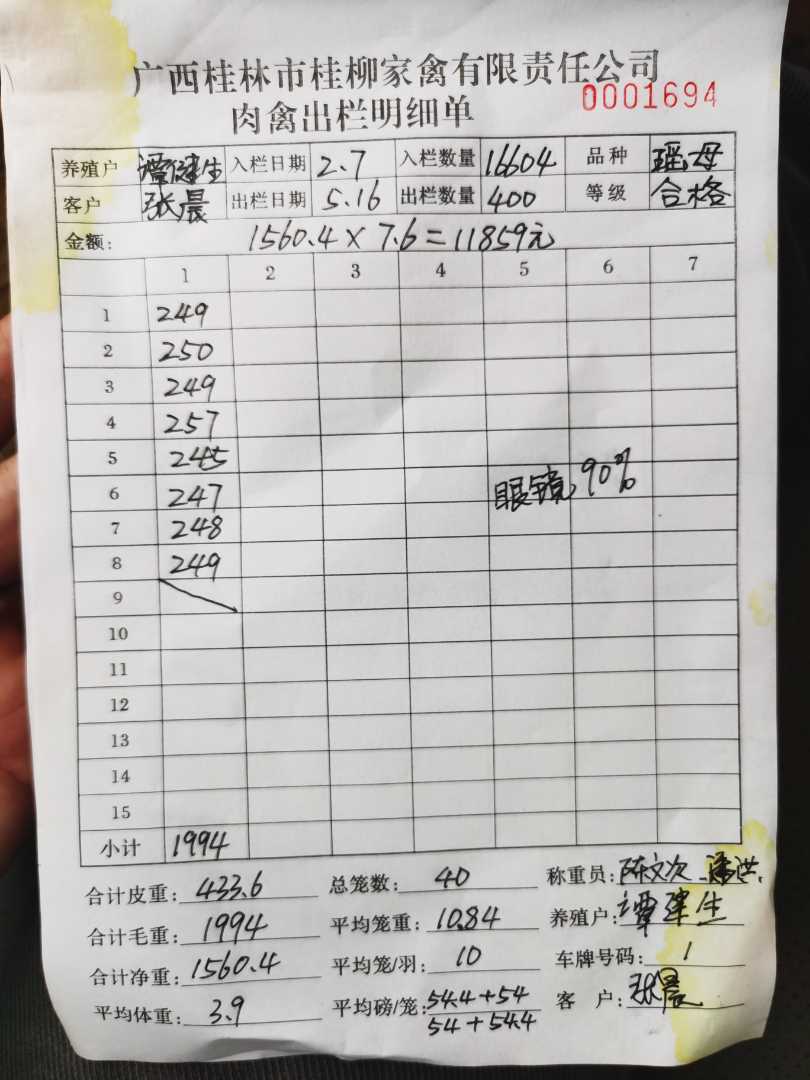 广西桂林市桂柳家禽有限责任公司
肉禽出栏明细单 0001694
养殖户 谭健生 入栏日期 2.7 入栏数量 16604 品种 瑶母
客户 张晨 出栏日期 5.16 出栏数量 400 等级 合格
金额: 1560.4 × 7.6 = 11859元
1 2 3 4 5 6 7
1 249
2 250
3 249
4 257
5 245
6 247 眼镜 90%
7 248
8 249
9
10
11
12
13
14
15
小计 1994
合计皮重: 433.6 总笼数: 40 称重员: 陈文次 潘洪
合计毛重: 1994 平均笼重: 10.84 养殖户: 谭建生
合计净重: 1560.4 平均笼/羽: 10 车牌号码: 1
平均体重: 3.9 平均磅/笼: 54.4+54 客 户: 张晨
54+54.4